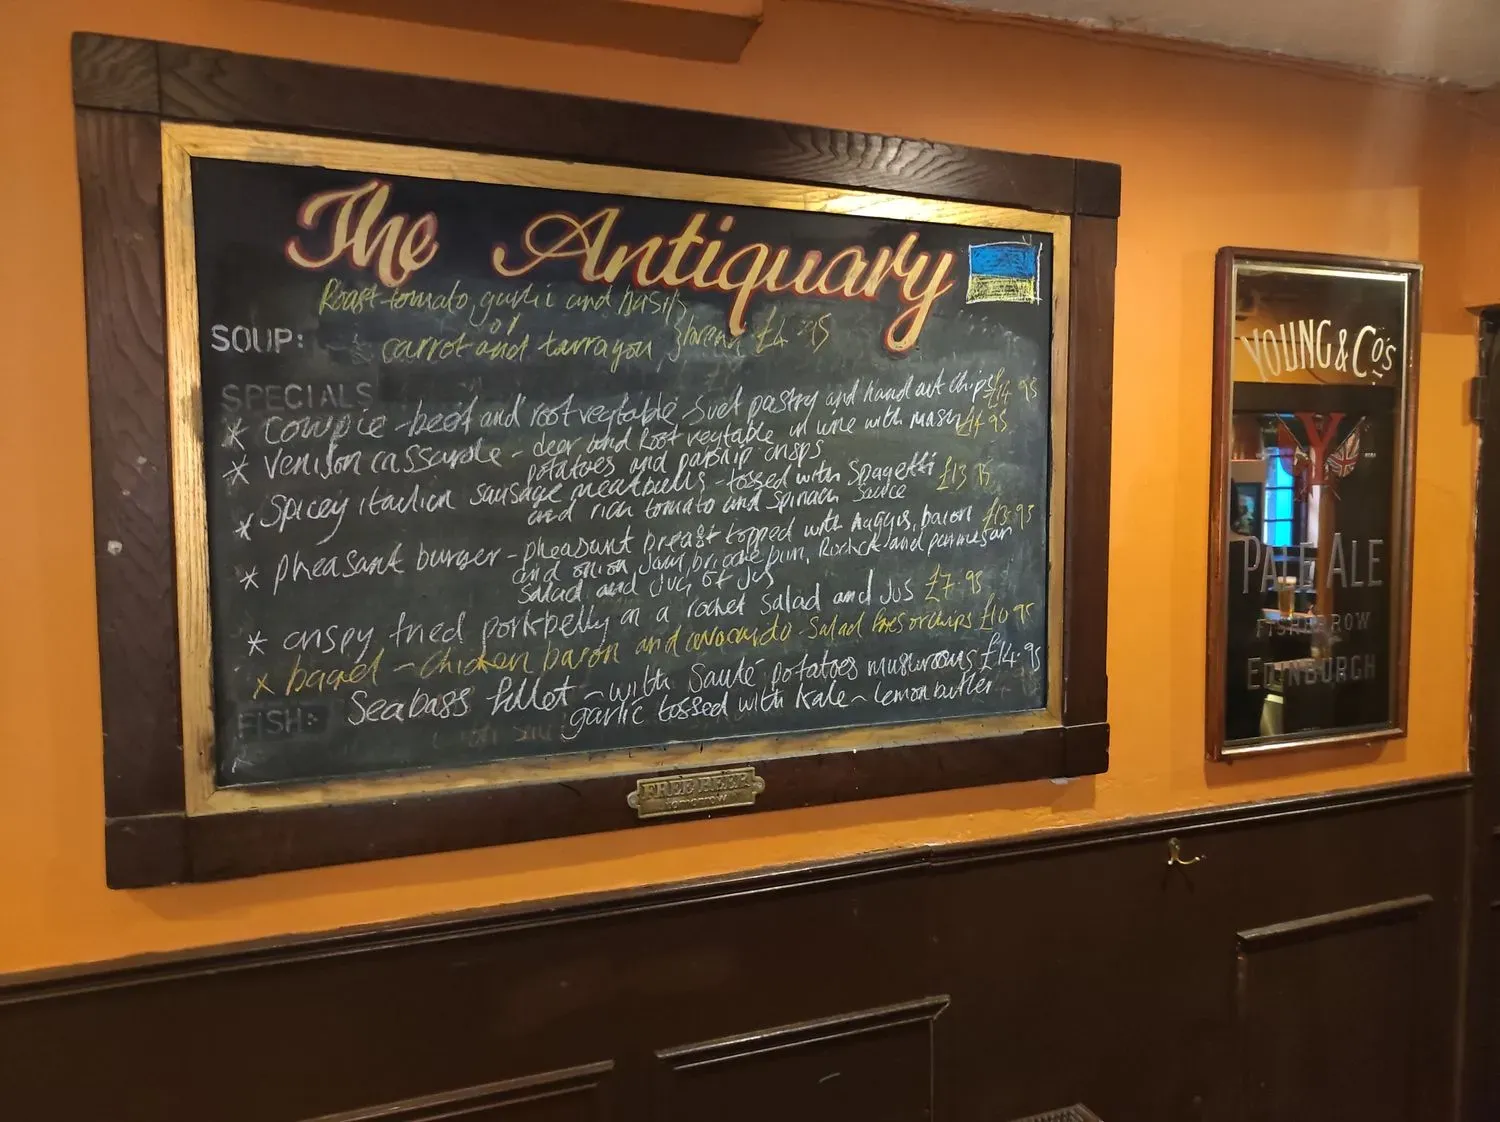 The Antiquary
Roast tomato, garlic and basil
or
SOUP: carrot and tarragon } bread £4.95
SPECIALS
* Cowpie - beef and root vegtable suet pastry and hand cut chips £14.95
* Venison cassarole - deer and Root vegtable in wine with mash £14.95
potatoes and parsnip crisps
* Spicey italien sausage meatballs - tossed with Spagetti £13.95
and rich tomato and Spinach Sauce
* pheasant burger - pheasant breast topped with haggis, bacon £13.95
and onion Jam, brioche bun, Rocket and parmesan
salad and Jug of Jus
* crispy fried pork belly on a rocket salad and Jus £7.95
x bagel - Chicken bacon and avocardo - Salad fries or chips £10.95
FISH: Seabass fillet ~ with Sauté potatoes mushrooms £14.95
garlic tossed with Kale ~ Lemon butter
FREE BEER
Tomorrow
YOUNG & Co's
Y
PALE ALE
FISHERROW
EDINBURGH